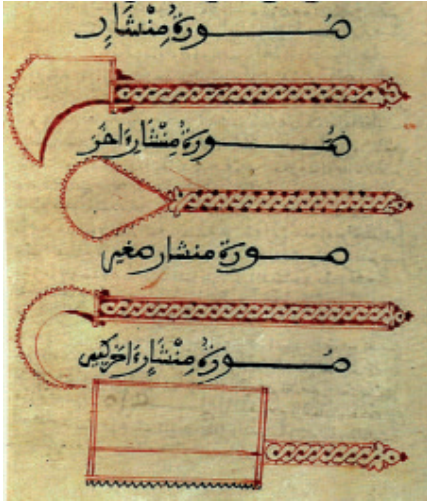 صُورَةُ مِنْشَارٍ
صُورَةُ مِنْشَارٍ اخَرَ
صورة منشار صغير
صُورَةُ مِنْشَارٍ اخر كبير